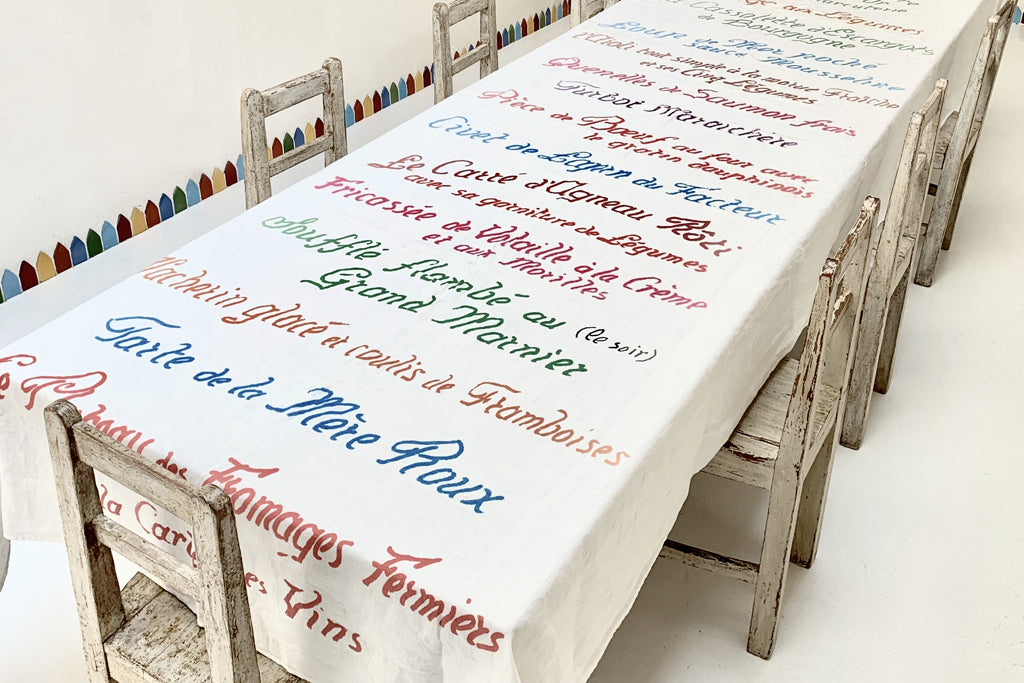 aux Légumes
La Cassolette d'Escargots
Bourguignonne
Loup de Mer poché
Sauce Mousseline
l'Aïoli tout simple à la morue Fraîche
et ses Cinq Légumes
Quenelles de Saumon frais
Turbot Maraichère
Pièce de Bœuf au feu avec
le gratin dauphinois
Civet de Lapin du Facteur
Le Carré d'Agneau Rôti
avec sa garniture de Légumes
Fricassée de Volaille à la Crème
et aux Morilles
Soufflé flambé au
Grand Marnier (le soir)
Vacherin glacé et coulis de Framboises
Tarte de la Mère Roux
des Fromages Fermiers
la Vins